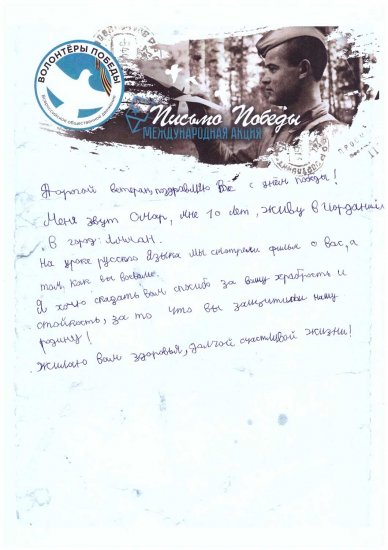 ВОЛОНТЁРЫ ПОБЕДЫ
Всероссийское общественное движение
Письмо Победы
МЕЖДУНАРОДНАЯ АКЦИЯ
Дорогой ветеран, поздравляю Вас с днём победы!
Меня зовут Омар, мне 10 лет, живу в Иордании
В город: Амман.
На уроке русского языка мы смотрели фильм о вас, а
том, как вы воевали.
Я хочу сказать вам спосибо за вашу храбрость и
стойкость, за то что вы защитили нашу
родину!
Жилаю вам здоровья, долгой счастливой жизни!